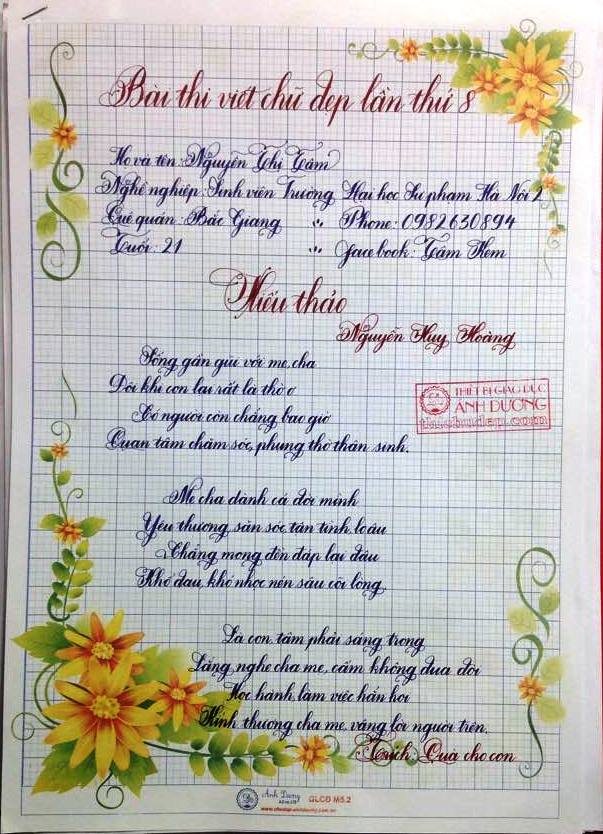 Bài thi viết chữ đẹp lần thứ 8
Họ và tên: Nguyễn Thị Tâm
Nghề nghiệp: Sinh viên Trường Đại học Sư phạm Hà Nội 2
Quê quán: Bắc Giang Phone: 0982630894
Tuổi: 21 facebook: Tâm Kem
Hiếu thảo
Nguyễn Huy Hoàng
Sống gần gũi với mẹ, cha
Đôi khi con lại rất là thờ ơ
Có người còn chẳng bao giờ
Quan tâm chăm sóc, phụng thờ thân sinh.
Mẹ cha dành cả đời mình
Yêu thương, săn sóc, tận tình, lo âu
Chẳng mong đền đáp lại đâu
Khổ đau, khó nhọc nén sâu cõi lòng
Là con tâm phải sáng trong
Lắng nghe cha mẹ, cấm không đua đòi
Học hành, làm việc hẳn hoi
Kính thương cha mẹ, vâng lời người trên.
Trích: Quà cho con
THIẾT BỊ GIÁO DỤC
ÁNH DƯƠNG
Ánh Dương
GLCĐ M5.2